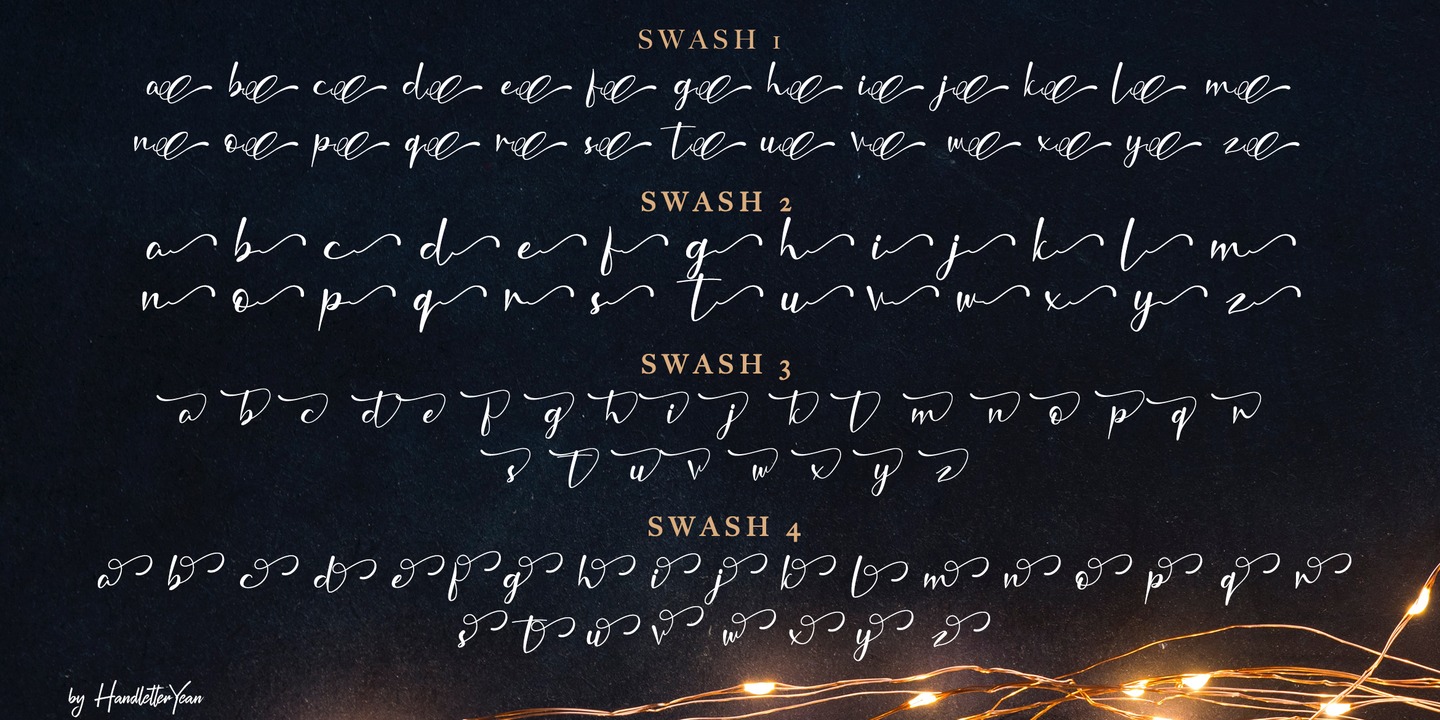 SWASH 1
a b c d e f g h i j k l m
n o p q r s t u v w x y z
SWASH 2
a b c d e f g h i j k l m
n o p q r s t u v w x y z
SWASH 3
a b c d e f g h i j k l m n o p q r
s t u v w x y z
SWASH 4
a b c d e f g h i j k l m n o p q r
s t u v w x y z
by HandletterYean